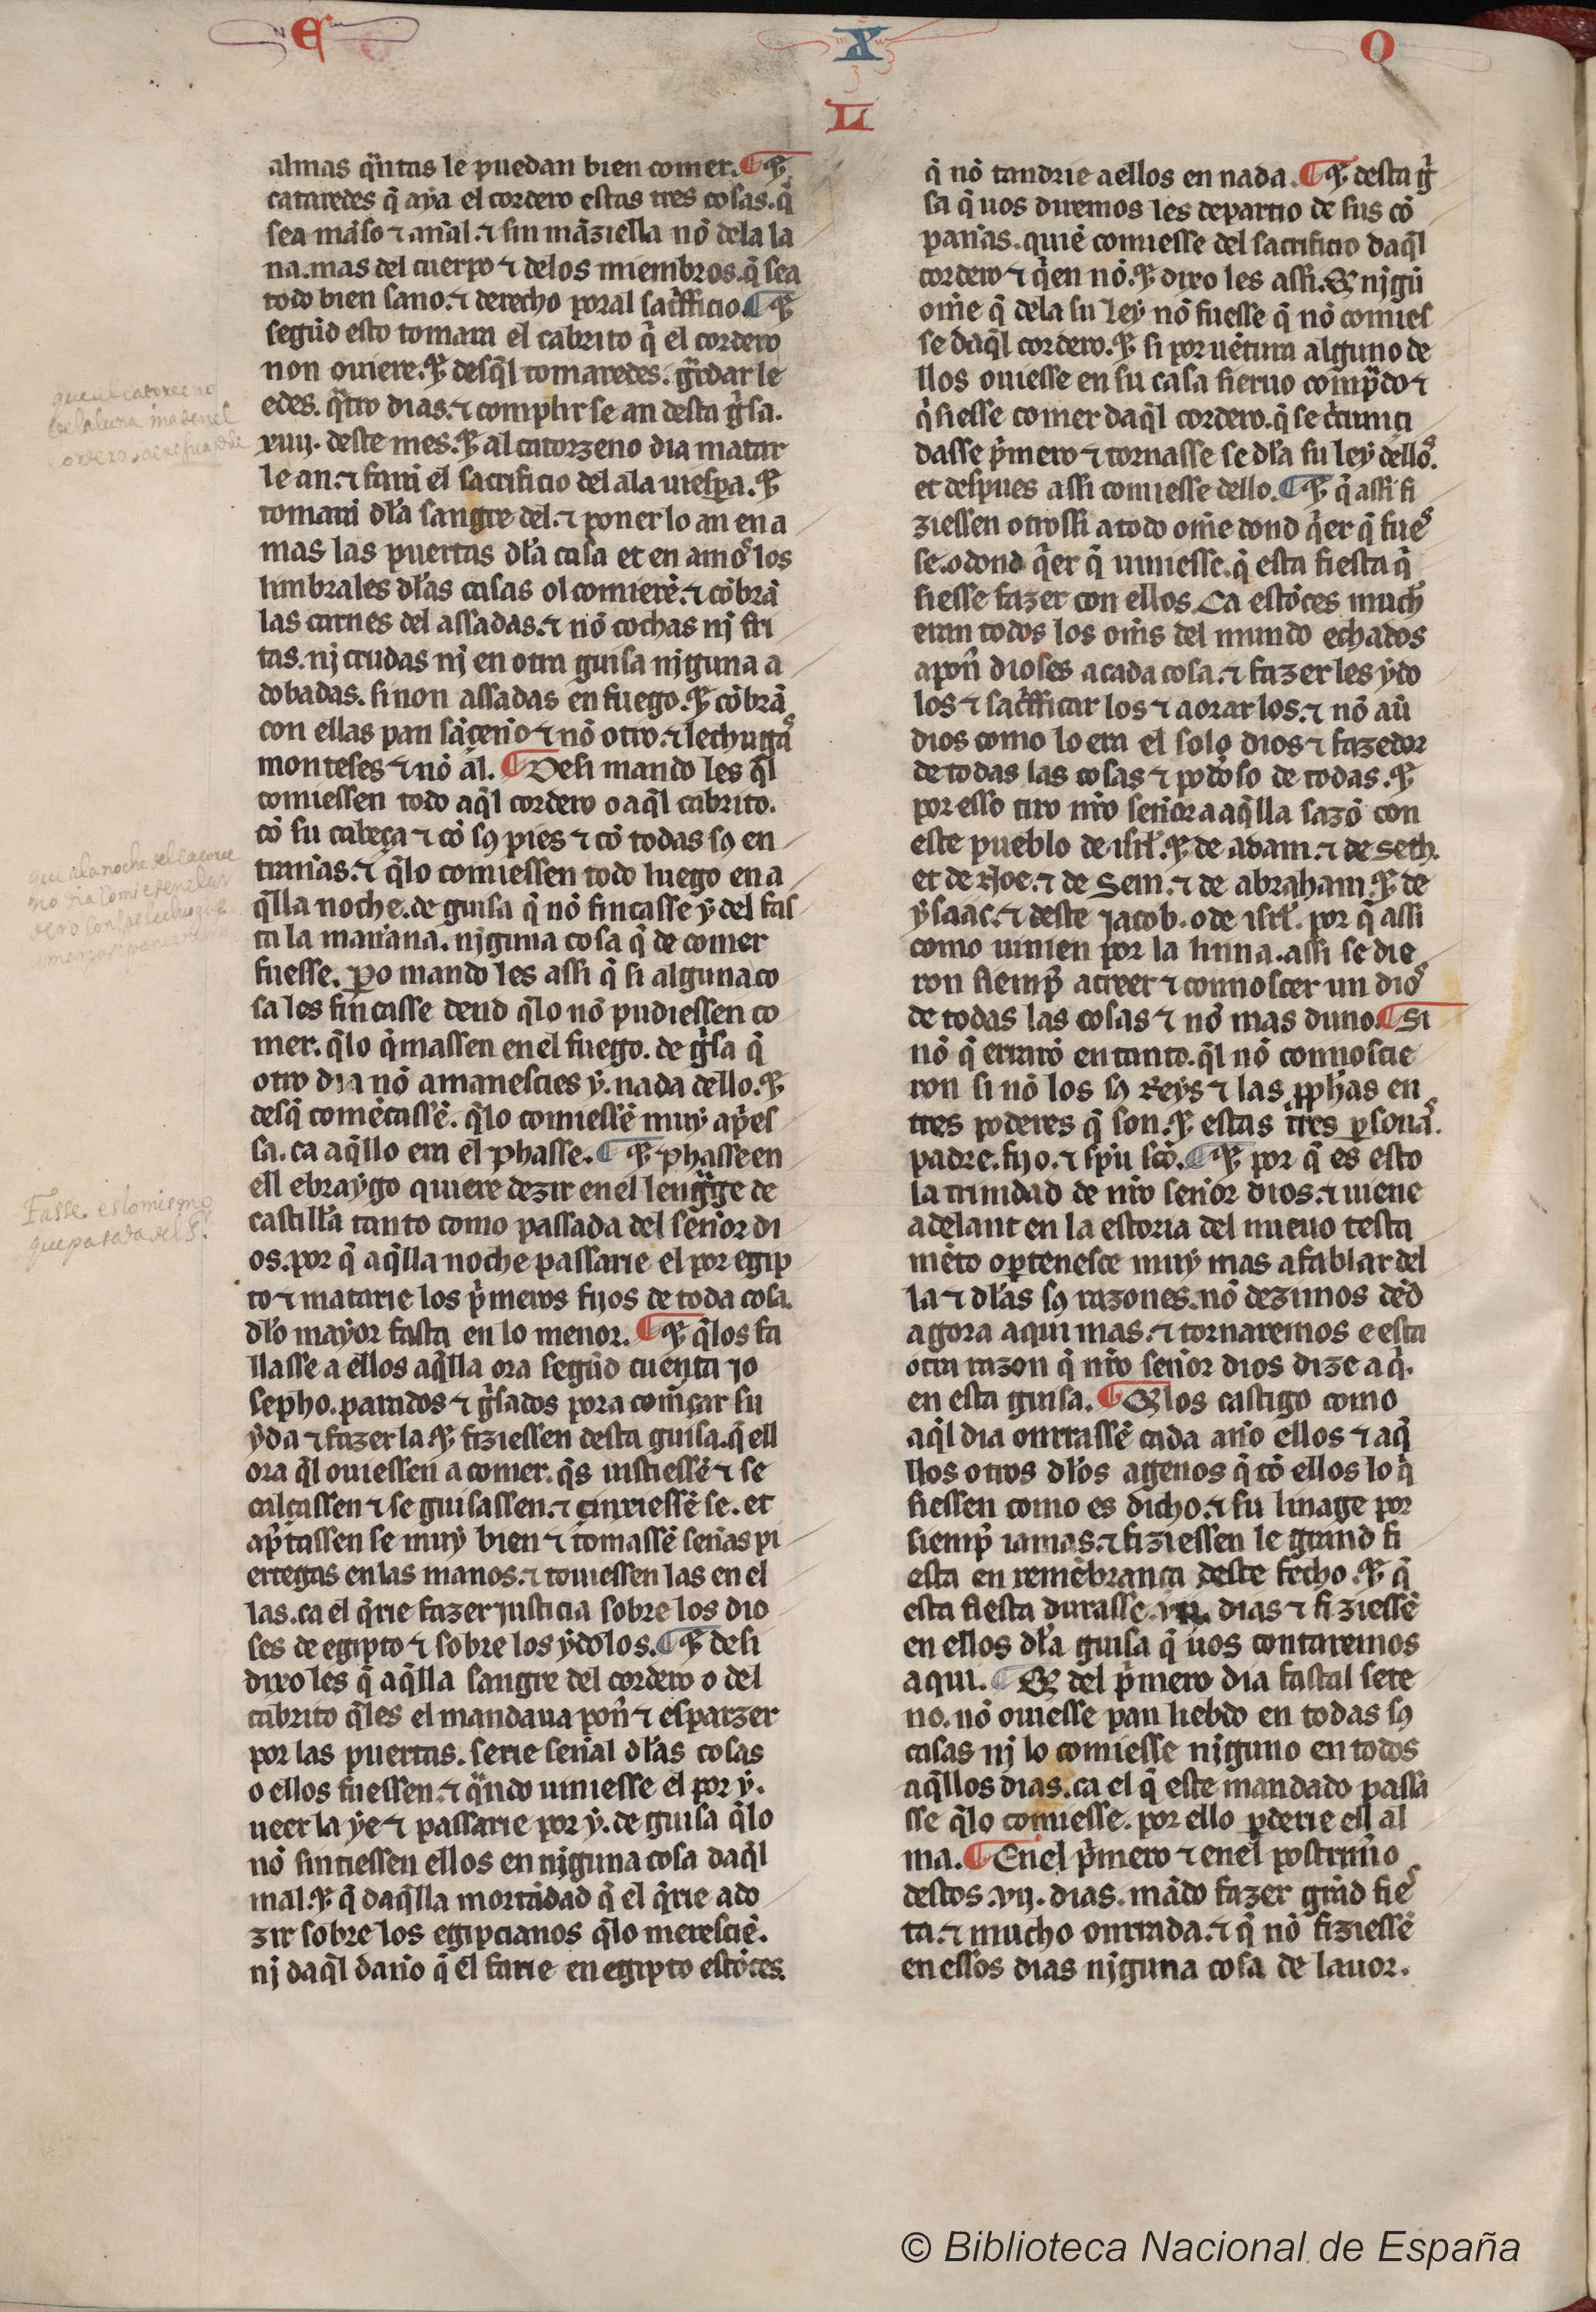 E X O
L
almas q̃ntas le puedan bien comer. ¶ ⁊
cataredes q̃ aya el cordero estas tres cosas. q̃
sea mãso ⁊ añal. ⁊ sin mãziella nõ dela la
na. mas del cuerpo ⁊ delos miembros. q̃ sea
todo bien sano. ⁊ derecho poral sac̃fficio. ¶ ⁊
segũd esto tomara el cabrito q̃ el cordero
non ouiere. ⁊ desq̃l tomaredes. g̃rdar le
edes. q̃tro dias. ⁊ complir se an desta g̃sa.
xiiij. deste mes. ⁊ al catorzeno dia matar
le an. ⁊ farã el sacrificio del ala uiespa. ⁊
tomarã dl̃a sangre del. ⁊ poner lo an en a
mas las puertas dl̃a casa et en amos los
limbrales dl̃as casas ol comierẽ. ⁊ cõbrã
las carnes del assadas. ⁊ nõ cochas nj fri
tas. nj crudas nj en otra guisa njguna a
dobadas. si non assadas en fuego. ⁊ cõbrã
con ellas pan sãcenõ ⁊ nõ otro. ⁊ lechugas
monteses ⁊ nõ al. ¶ Desi mando les q̃l
comiessen todo aq̃l cordero o aq̃l cabrito.
cõ su cabeça ⁊ cõ sꝯ pies ⁊ cõ todas sꝯ en
trañas. ⁊ q̃lo comiessen todo luego en a
q̃lla noche. de guisa q̃ nõ fincasse y del fas
ta la mañana. njguna cosa q̃ de comer
fuesse. ꝑo mando les assi q̃ si alguna co
sa les fincasse dend q̃lo nõ pudiessen co
mer. q̃lo q̃massen en el fuego. de g̃sa q̃
otro dia nõ amanescies y. nada dello. ⁊
desq̃ comẽcassẽ. q̃lo comiessẽ muy ap̃es
sa. ca aq̃llo era el phasse. ¶ ⁊ phasse en
ell ebraygo quiere dezir en el lenguage de
castilla tanto como passada del señor di
os. por q̃ aq̃lla noche passarie el por egip
to ⁊ matarie los p̃meros fijos de toda cosa.
dl̃o mayor fasta en lo menor. ¶ ⁊ q̃los fa
llasse a ellos aq̃lla ora segũd cuenta Jo
sepho. parados ⁊ g̃sados pora comẽçar su
yda ⁊ fazer la. ⁊ fiziessen desta guisa. q̃ ell
ora q̃l ouiessen a comer. q̃s uistiessẽ ⁊ se
calçassen ⁊ se guisassen. ⁊ cinxiessẽ se. et
ap̃tassen se muy bien ⁊ tomassẽ señas pi
ertegas en las manos. ⁊ touiessen las en el
las. ca el q̃rie fazer justicia sobre los dio
ses de egipto ⁊ sobre los ydolos. ¶ ⁊ desi
dixo les q̃ aq̃lla sangre del cordero o del
cabrito q̃les el mandaua poñ ⁊ esparzer
por las puertas. serie señal dl̃as cosas
o ellos fuessen. ⁊ q̃ndo uiniesse el por y.
ueer la ye ⁊ passarie por y. de guisa q̃lo
nõ sintiessen ellos en njguna cosa daq̃l
mal. ⁊ q̃ daq̃lla mortãdad q̃ el q̃rie ado
zir sobre los egipcianos q̃lo merescíẽ.
nj daq̃l daño q̃ el farie en egipto estõces.
q̃ nõ tandrie a ellos en nada. ¶ ⁊ desta g̃
sa q̃ uos diremos les departio de sus cõ
pañas. quiẽ comiesse del sacrificio daq̃l
cordero ⁊ q̃en nõ. ⁊ dixo les assi. Q̃ njgũ
om̃e q̃ dela su ley nõ fuesse q̃ nõ comies
se daq̃l cordero. ⁊ si por uẽtura alguno de
llos ouiesse en su casa sieruo comp̃do ⁊
q̃siesse comer daq̃l cordero. q̃ se c̃cumci
dasse p̃mero ⁊ tornasse se dl̃a su ley dellos.
et despues assi comiesse dello. ¶ ⁊ q̃ assi fi
ziessen otrossi a todo om̃e dond q̃er q̃ fues
se. o dond q̃er q̃ uiniesse. q̃ esta fiesta q̃
siesse fazer con ellos. Ca estõces much
eran todos los om̃s del mundo echados
a poñ dioses a cada cosa. ⁊ fazer les ydo
los ⁊ sac̃fficar los ⁊ aorar los. ⁊ nõ aũ
dios como lo era el solo dios ⁊ fazedor
de todas las cosas ⁊ podo̊so de todas. ⁊
por esso tiro nr̃o señor a aq̃lla sazõ con
este pueblo de isrl̃. ⁊ de adam. ⁊ de Seth.
et de Noe. ⁊ de Sem. ⁊ de abraham. ⁊ de
ysaac. ⁊ deste Jacob. o de isrl̃. por q̃ assi
como uinien por la linna. assi se die
ron siemp̃ a creer ⁊ connoscer un dios
de todas las cosas ⁊ nõ mas duno. ¶ Si
nõ q̃ errarõ en tanto. q̃l nõ connoscie
ron si nõ los sꝯ Reys ⁊ las ꝓphas en
tres poderes q̃ son. ⁊ estas tres ꝑsonas.
padre. fijo. ⁊ spũ scõ. ¶ ⁊ por q̃ es esto
la trinidad de nr̃o señor dios. ⁊ uiene
adelant en la estoria del nueuo testa
mẽto o ꝑtenesce muy mas a fablar del
la ⁊ dl̃as sꝯ razones. nõ dezimos dẽd
agora aqui mas. ⁊ tornaremos e esta
otra razon q̃ nr̃o señor dios dize aq̃.
en esta guisa. ¶ Q̃los castigo como
aq̃l dia onrrassẽ cada año ellos ⁊ aq̃
llos otros dl̃os agenos q̃ cõ ellos lo q̃
siessen como es dicho. ⁊ su linage por
siemp̃ iamas. ⁊ fiziessen le grand fi
esta en remẽbrança deste fecho. ⁊ q̃
esta fiesta durasse. dias ⁊ fiziessẽ
en ellos dl̃a guisa q̃ uos contaremos
aqui. ¶ Q̃ del p̃mero dia fastal sete
no. nõ ouiesse pan liebdo en todas sꝯ
casas nj lo comiesse njguno en todos
aq̃llos dias. ca el q̃ este mandado passa
sse q̃lo comiesse. por ello ꝑderie ell al
ma. ¶ En el p̃mero ⁊ en el postrim̃o
destos. vij. dias. mãdo fazer grãd fies
ta. ⁊ mucho onrrada. ⁊ q̃ nõ fiziessẽ
en essos dias njguna cosa de lauor.
Fasse es lo mismo
que pasada del S.ʳ
© Biblioteca Nacional de España